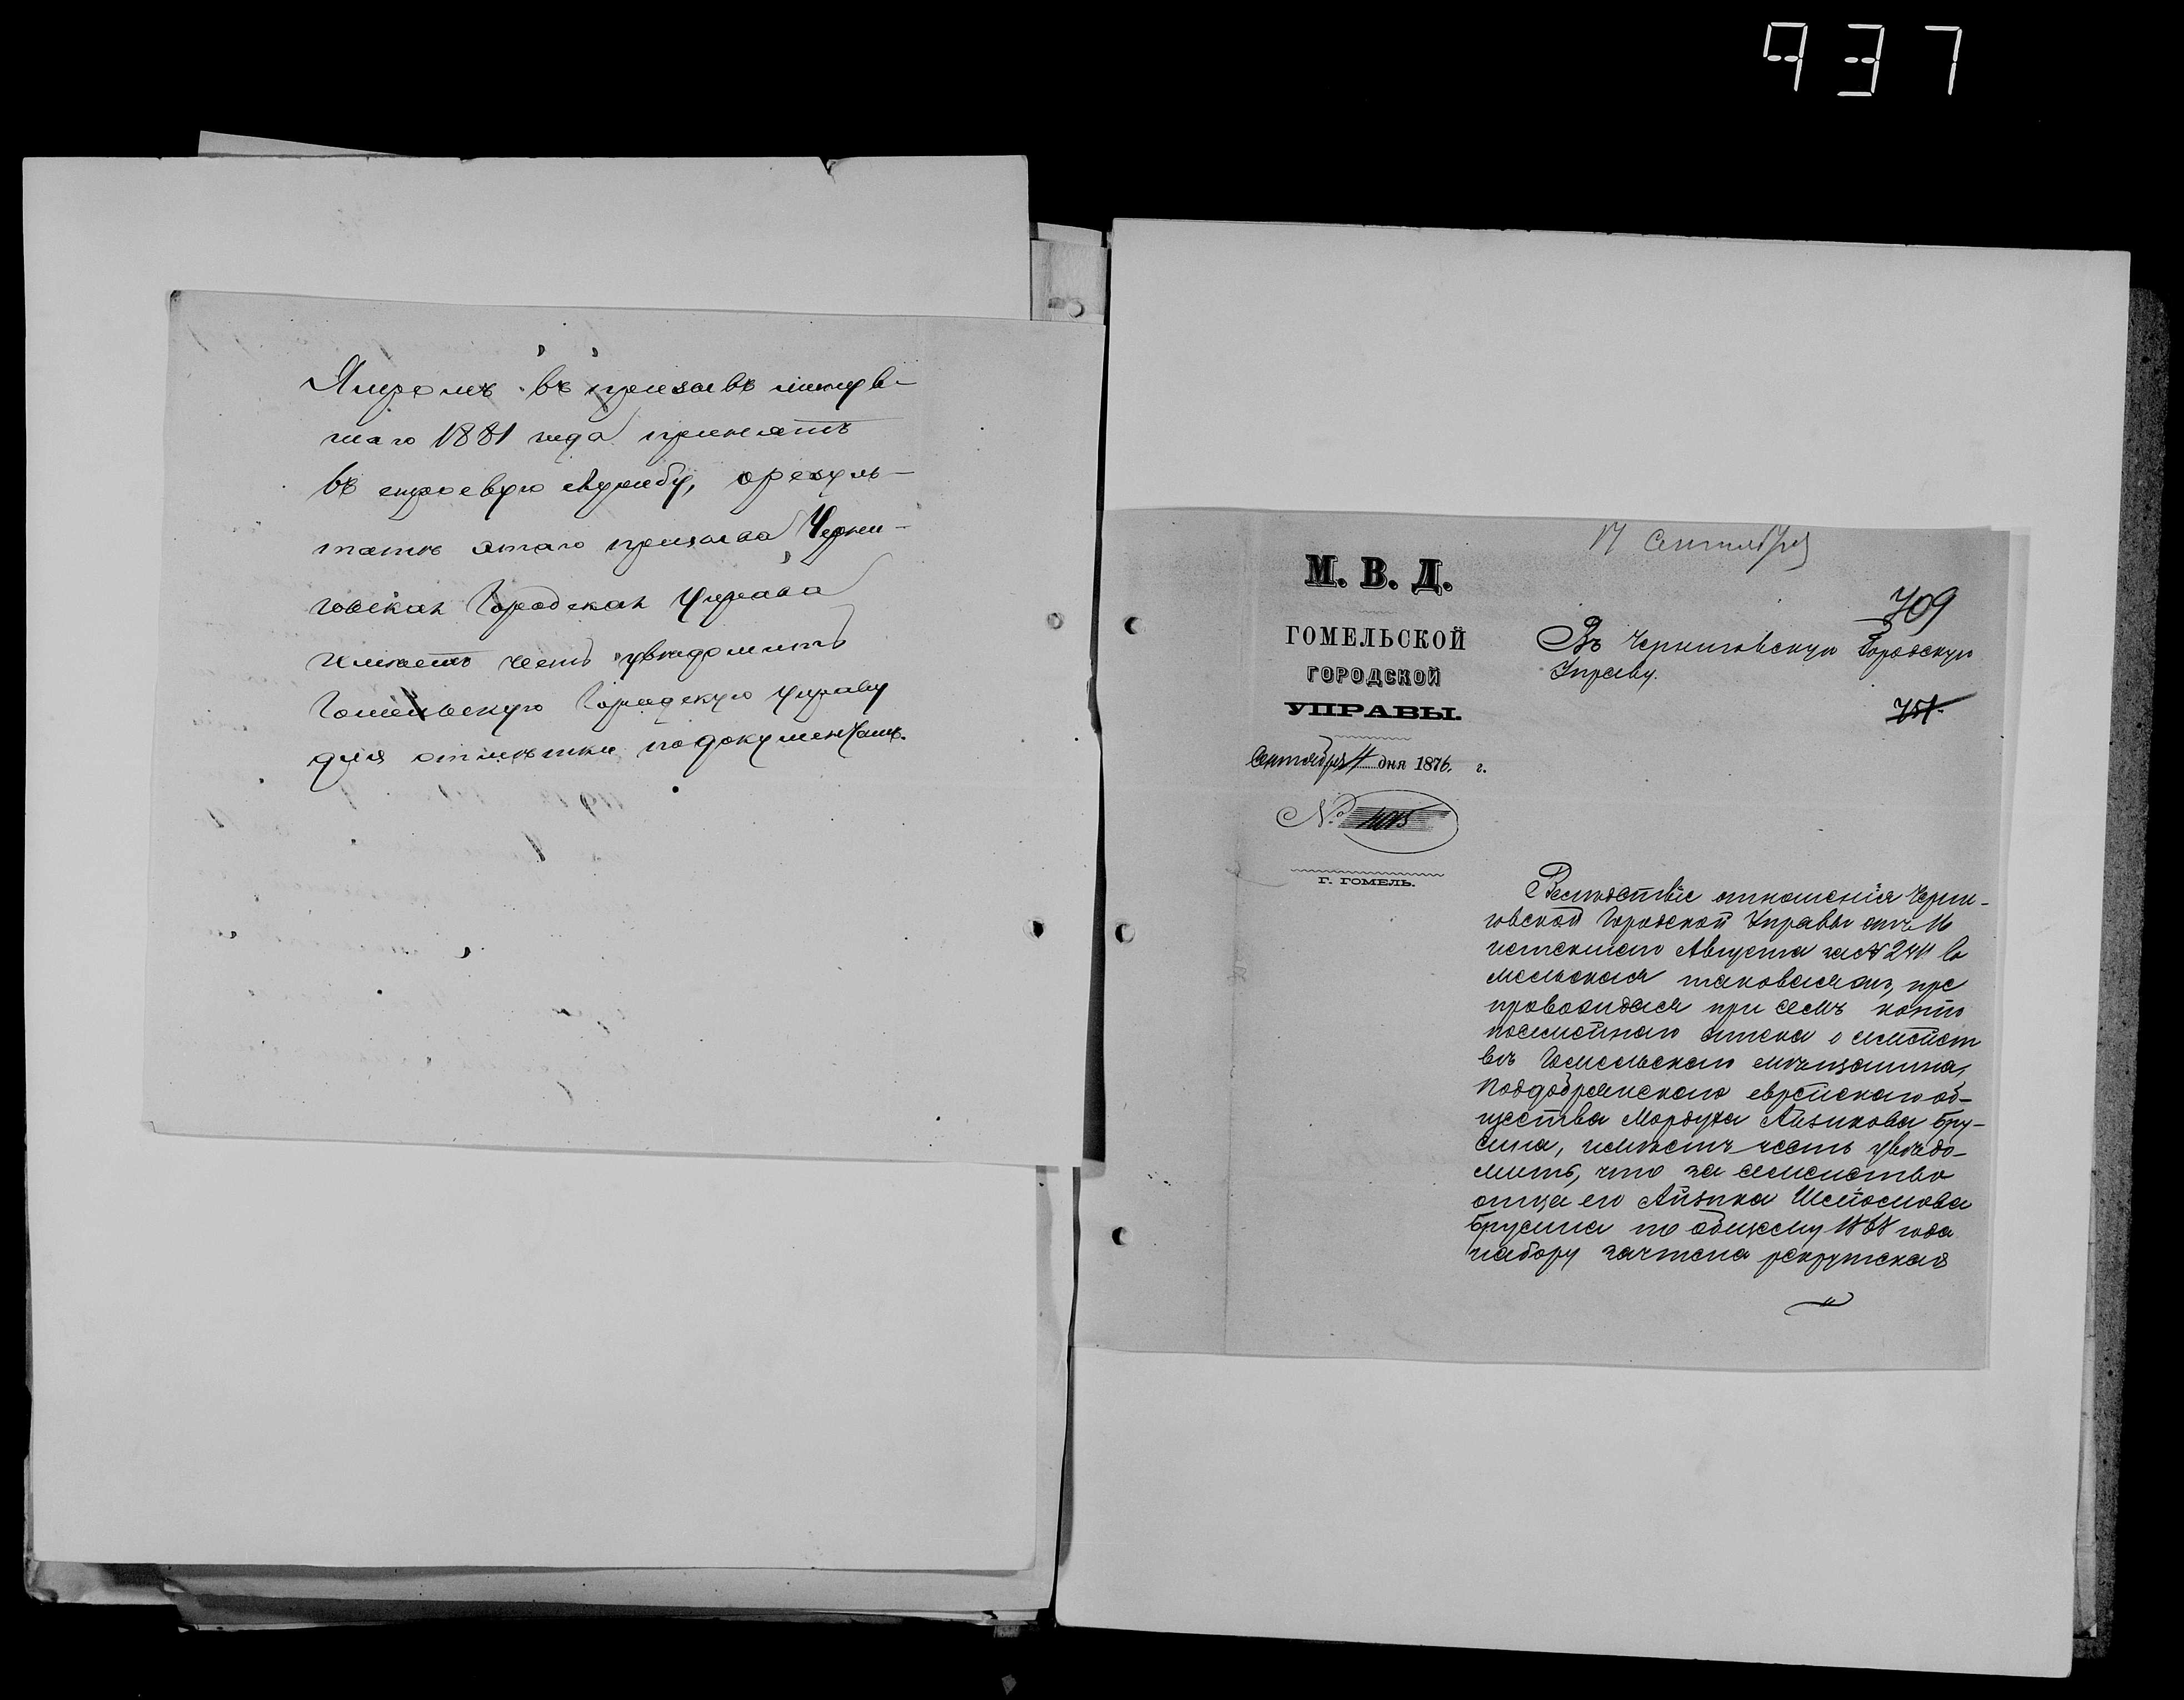 937
Ямполь въ призывъ минув-
шаго 1881 года принятъ
въ строевую службу, о резуль-
татѣ этаго призыва Черни-
говская Городская Управа
имѣетъ честь увѣдомить
Гомельскую Городскую Управу
для отмѣтки по документамъ.
17 Сентября
М. В. Д.
ГОМЕЛЬСКОЙ
ГОРОДСКОЙ
УПРАВЫ.
Сентября 11 дня 1876. г.
№
Г. ГОМЕЛЬ.
709
Въ Черниговскую Городскую
Управу.
751.
Вслѣдствіе отношенія Черни-
говской Городской Управы отъ 16
истекшаго Августа за № 2411 Го
мельская таковая же, пре
провождая при семъ копію
посемейнаго списка о семейст
вѣ Гомельскаго мѣщанина,
Поддобрянскаго еврейскаго об-
щества Мордуха Айзикова Бру-
сина, имѣетъ честь увѣдо-
мить, что за семейство
отца его Айзика
Брусина по общему 1868 года
набору зачтена рекрутская